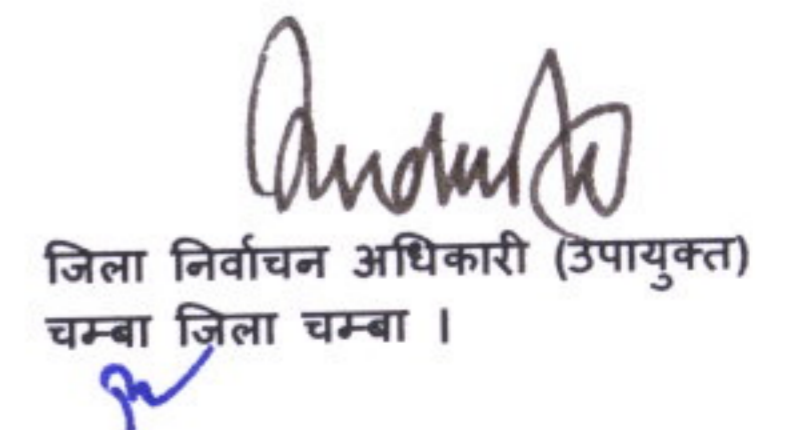 जिला निर्वाचन अधिकारी (उपायुक्त)
चम्बा जिला चम्बा ।